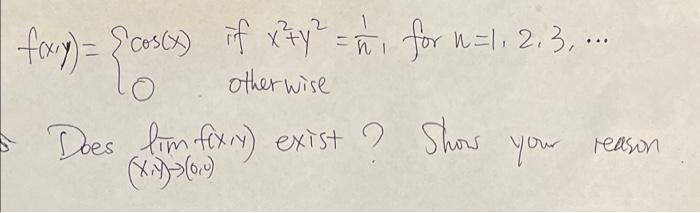 f(x,y) = { cos(x) if x²+y² = 1/n, for n=1, 2, 3, ...
0 otherwise
Does lim f(x,y) exist ? Show your reason.
(x,y)→(0,0)